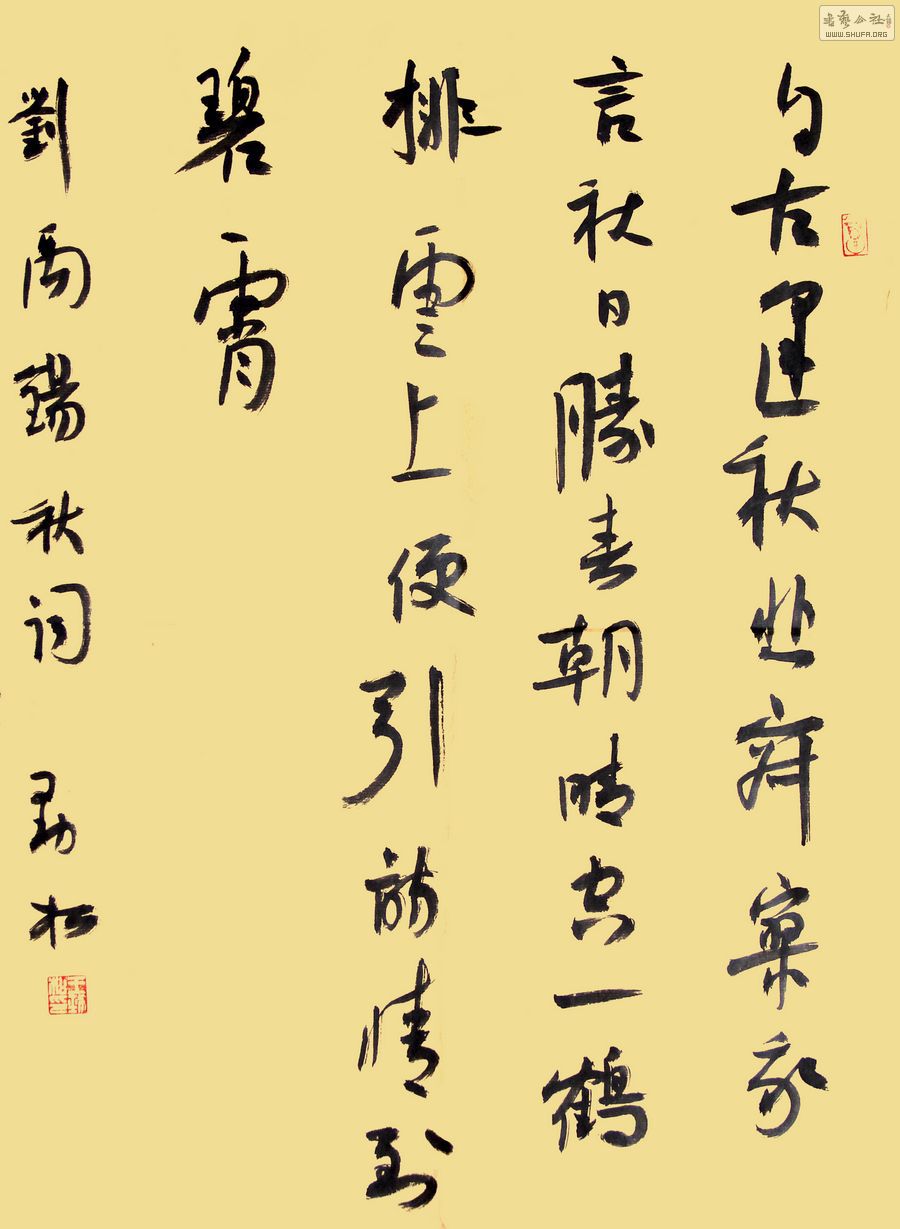 自古逢秋悲寂寥我
言秋日勝春朝晴空一鶴
排雲上便引詩情到
碧霄
劉禹錫秋詞 勁松
書藝公社
WWW.SHUFA.ORG